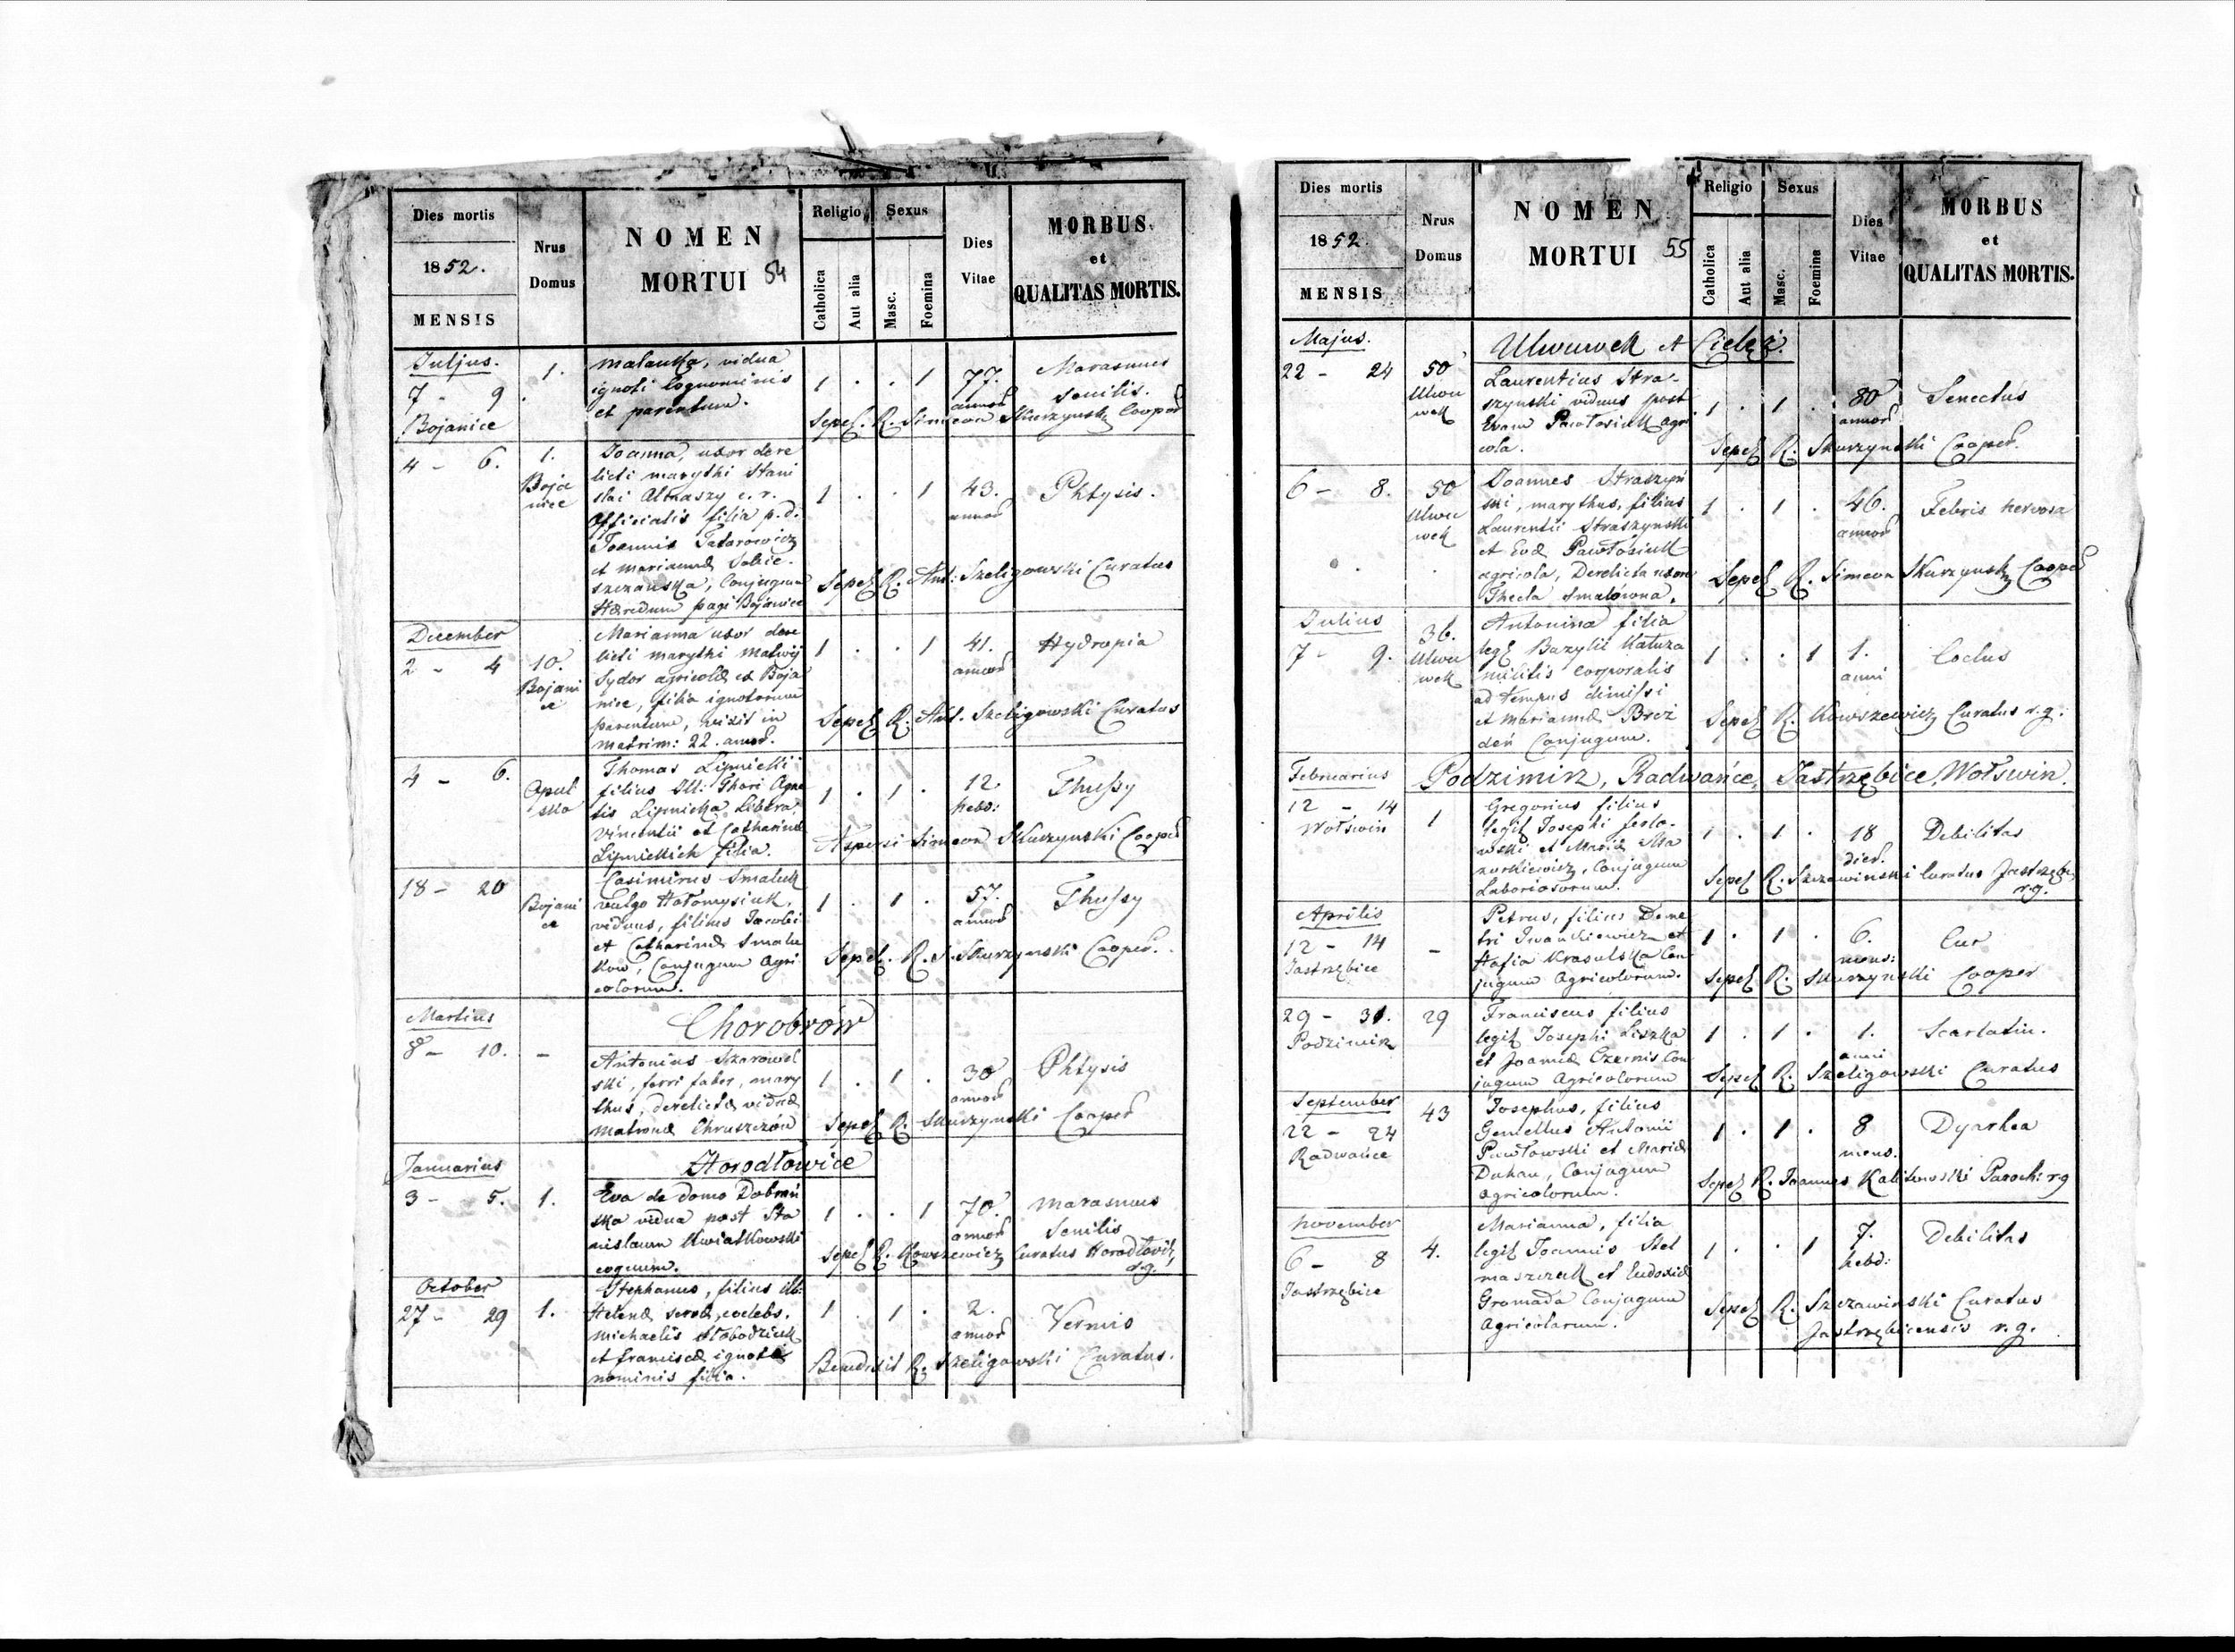 Dies mortis
1852.
MENSIS
Nrus
Domus
NOMEN
MORTUI 54
Religio
Catholica
Aut alia
Sexus
Masc.
Foemina
Dies
Vitae
MORBUS
et
QUALITAS MORTIS.
Julius.
7 - 9.
Bojanice
1.
Malanka, vidua
ignoti Cognominis
et parentum.
1 . . 1
77.
annor
Marasmus
senilis.
Sepel. R. Simeon Skurzynski Cooper
4 - 6.
1.
Boja
nice
Joanna, uxor dere
licti marythi Stani
slai c. r.
officialis filia p. d.
Joannis Tatarowicz
et Mariannae Sobie
szczanska, Conjugum
Haeredum pagi Bojanice
1 . . 1
43.
annor
Phtysis.
Sepel R. Ant: Szeligowski Curatus
December
2 - 4
10.
Bojani
ce
Marianna uxor dere
licti marythi Matwij
Sydor agricolae ex Boja
nice, filia ignotorum
parentum, vixit in
matrim: 22. annor.
1 . . 1
41.
annor
Hydropia
Sepel R. Ant. Szeligowski Curatus
4 - 6.
Opul
sko
Thomas Lipnicki
filius Ill: Thori Agne
tis Lipnicka Libera,
Vincentii et Catharinae
Lipnickich filia.
1 . 1 .
12
hebd:
Thussy
Aspersi Simeon Skurzynski Cooper
18 - 20
Bojani
ce
Casimirus Smaluk
vulgo Hołomysiuk,
viduus, filius Jacobi
et Catharinae Smalu
kow, Conjugum Agri
colorum.
1 . 1 .
57.
annor
Thussy
Sepel. R. S. Skurzynski Cooper.
Martius
Chorobrow
8 - 10.
-
Antonius Szarowol
ski, ferri faber, mary
thus, derelictae viduae
Matronae Chruszczów
1 . 1 .
30
annor
Phtysis
Sepel R. Skurzynski Cooper
Januarius
Horodłowice
3 - 5.
1.
Eva de domo Dobrań
ska vidua post Sta
nislaum Kwiatkowski
coquum.
1 . . 1
70.
annor
Marasmus
Senilis
Sepel R. Kowszewicz Curatus Horodłovic,
r.g.
October
27 - 29
1.
Stephanus, filius ill:
Helenae servae, coelebs,
Michaelis Słobodziuk
et franciscae ignoti
nominis filia.
1 . 1 .
2.
annor
Vermis
Benedixit R. Szeligowski Curatus.
Dies mortis
1852.
MENSIS
Nrus
Domus
NOMEN
MORTUI 55
Religio
Catholica
Aut alia
Sexus
Masc.
Foemina
Dies
Vitae
MORBUS
et
QUALITAS MORTIS.
Majus.
Uhwuwek et Cieląż.
22 - 24
50
Uhwu
wek
Laurentius Stra-
szynski viduus post
Evam Pawłosiuk agri
cola.
1 . 1 .
80
annor
Senectus
Sepel R. Skurzynski Cooper.
6 - 8.
50
Uhwu
wek
Joannes Straszyń
ski, marythus, filius
Laurentii Straszynski
et Evae Pawłosiuk
agricola, Derelicta uxore
Thecla Smalówna.
1 . 1 .
46.
annor
Febris nervosa
Sepel R. Simeon Skurzynski Cooper
Julius
7 - 9.
36.
Uhwu
wek
Antonina filia
legl Bazylii Kałuza
militis corporalis
ad tempus dimissi
et Mariannae Brez
deń Conjugum.
1 . . 1
1.
anni
Coclus
Sepel R. Kowszewicz Curatus r.g.
Februarius
Podzimirz, Radwańce, Jastrzębice, Wołswin.
12 - 14
Wołswin
1
Gregorius filius
legit Josephi
et Mariae Ma
zurkiewicz, Conjugum
Laboriosorum.
1 . 1 .
18
dier.
Debilitas
Sepel R. Szczawinski Curatus Jastrzęb,
r.g.
Aprilis
12 - 14
Jastrzębice
-
Petrus, filius Deme
tri Iwankiewicz et
Hafia Krasulska Con
jugum Agricolorum.
1 . 1 .
6.
mens:
Cur
Sepel R. Skurzynski Cooper
29 - 31.
Podzimirz
29
Franciscus filius
legit Josephi Liszka
et Joannae Czernis Con
jugum Agricolorum
1 . 1 .
1.
anni
Scarlatin.
Sepel R. Szeligowski Curatus
September
22 - 24
Radwańce
43
Josephus, filius
Gemellus Antonii
Pawłowski et Mariae
Duhan, Conjugum
agricolorum.
1 . 1 .
8
mens.
Dyarhea
Sepel R. Joannes Kalitowski Paroch: rg
November
6 - 8
Jastrzębice
4.
Marianna, filia
legit Joannis Stel
maszczuk et Eudoxiae
Gromada Conjugum
Agricolarum.
1 . . 1
7.
hebd:
Debilitas
Sepel R. Szczawinski Curatus
Jastrzębicensis r.g.